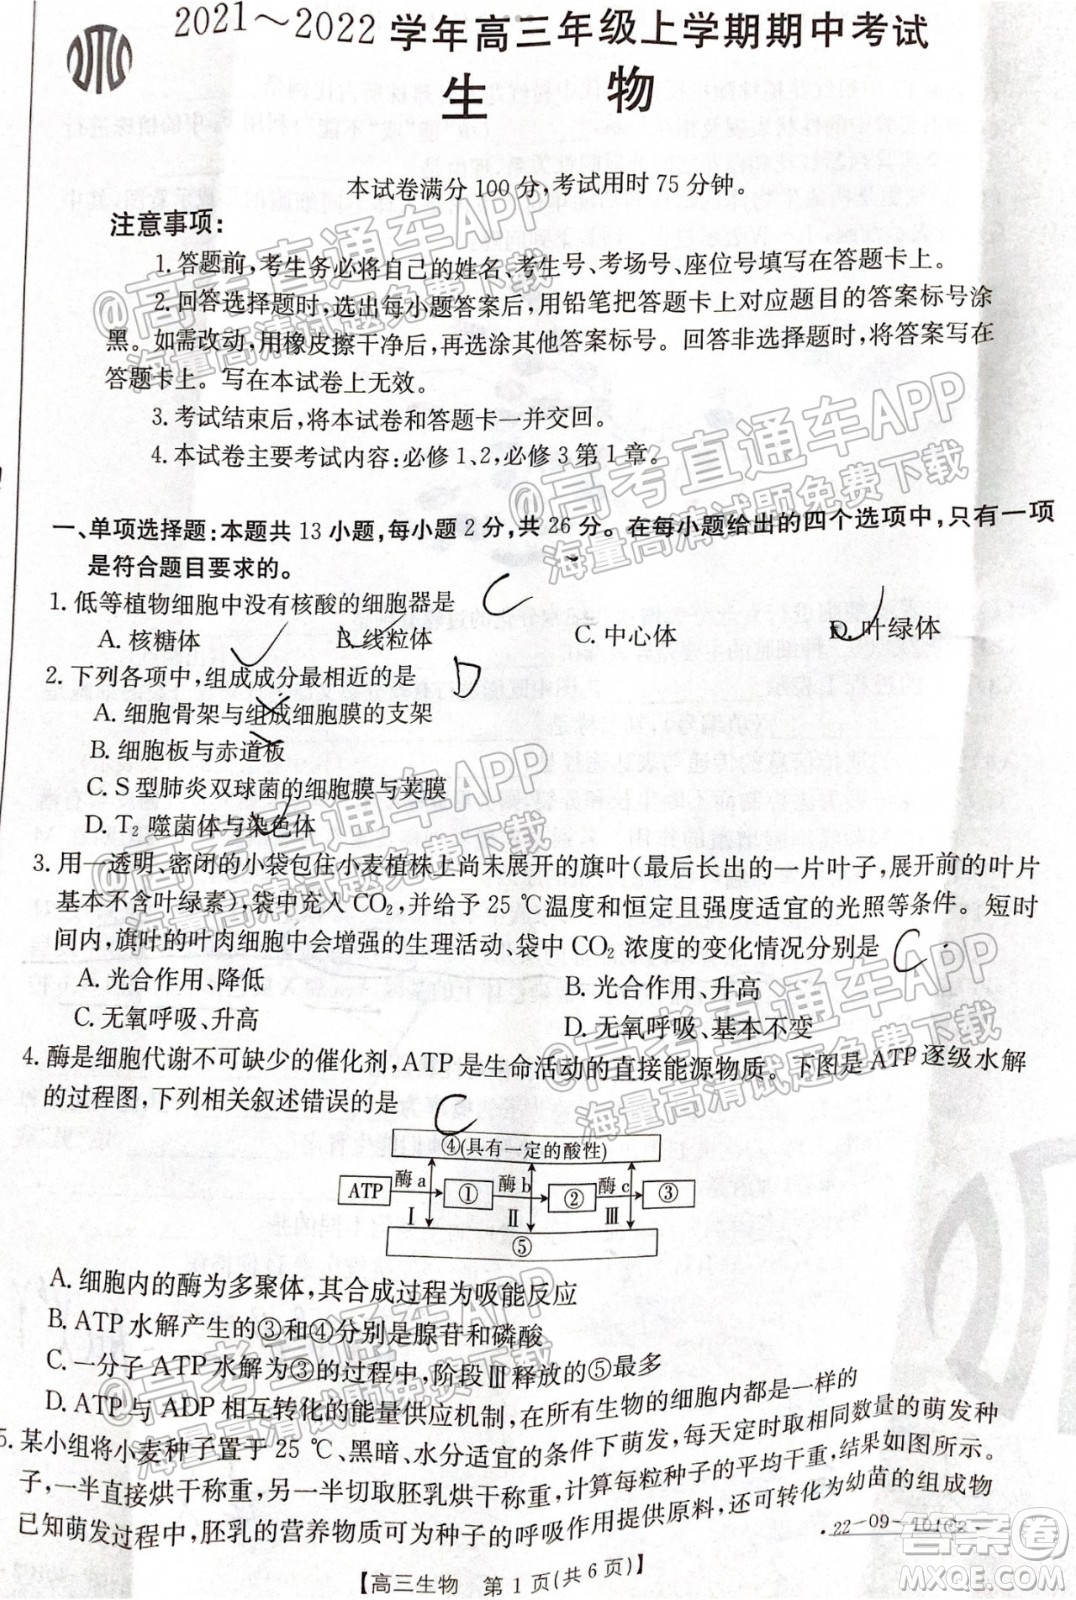 2021～2022学年高三年级上学期期中考试
生 物
本试卷满分100分,考试用时75分钟。
注意事项:
1.答题前,考生务必将自己的姓名、考生号、考场号、座位号填写在答题卡上。
2.回答选择题时,选出每小题答案后,用铅笔把答题卡上对应题目的答案标号涂
黑。如需改动,用橡皮擦干净后,再选涂其他答案标号。回答非选择题时,将答案写在
答题卡上。写在本试卷上无效。
3.考试结束后,将本试卷和答题卡一并交回。
4.本试卷主要考试内容:必修1、2,必修3第1章。
一、单项选择题:本题共13小题,每小题2分,共26分。在每小题给出的四个选项中,只有一项
是符合题目要求的。
1.低等植物细胞中没有核酸的细胞器是 C
A.核糖体 B.线粒体 C.中心体 D.叶绿体
2.下列各项中,组成成分最相近的是 D
A.细胞骨架与组成细胞膜的支架
B.细胞板与赤道板
C.S型肺炎双球菌的细胞膜与荚膜
D.T₂噬菌体与染色体
3.用一透明、密闭的小袋包住小麦植株上尚未展开的旗叶(最后长出的一片叶子,展开前的叶片
基本不含叶绿素),袋中充入CO₂,并给予25 ℃温度和恒定且强度适宜的光照等条件。短时
间内,旗叶的叶肉细胞中会增强的生理活动、袋中CO₂浓度的变化情况分别是 C
A.光合作用、降低 B.光合作用、升高
C.无氧呼吸、升高 D.无氧呼吸、基本不变
4.酶是细胞代谢不可缺少的催化剂,ATP是生命活动的直接能源物质。下图是ATP逐级水解
的过程图,下列相关叙述错误的是 C
④(具有一定的酸性)
ATP 酶a Ⅰ ① 酶b Ⅱ ② 酶c Ⅲ ③
⑤
A.细胞内的酶为多聚体,其合成过程为吸能反应
B.ATP水解产生的③和④分别是腺苷和磷酸
C.一分子ATP水解为③的过程中,阶段Ⅲ释放的⑤最多
D.ATP与ADP相互转化的能量供应机制,在所有生物的细胞内都是一样的
5.某小组将小麦种子置于25 ℃、黑暗、水分适宜的条件下萌发,每天定时取相同数量的萌发种
子,一半直接烘干称重,另一半切取胚乳烘干称重,计算每粒种子的平均干重,结果如图所示。
已知萌发过程中,胚乳的营养物质可为种子的呼吸作用提供原料,还可转化为幼苗的组成物
【高三生物 第1页(共6页)】
·22-09-101C2·
@高考直通车APP
海量高清试题免费下载
@高考直通车APP
海量高清试题免费下载
@高考直通车APP
海量高清试题免费下载
@高考直通车APP
海量高清试题免费下载
@高考直通车APP
海量高清试题免费下载
答案卷
MXQE.COM